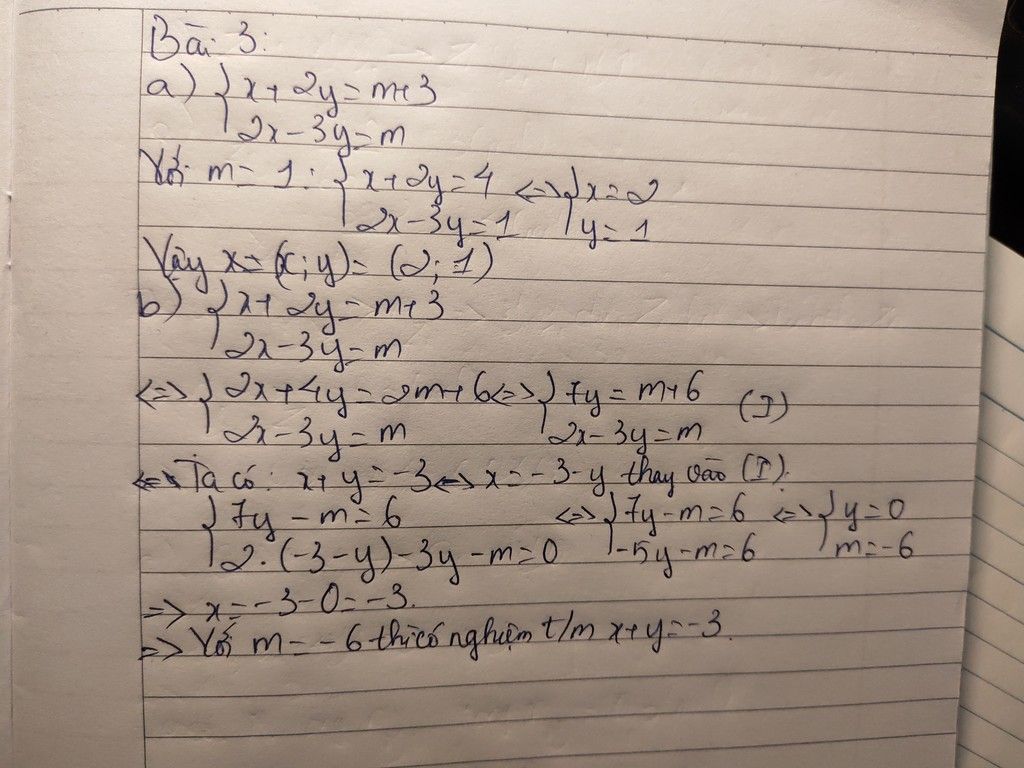 Bài 3:
a) { x + 2y = m+3
2x - 3y = m
Với m = 1 : { x + 2y = 4 <=> { x = 2
2x - 3y = 1 { y = 1
Vậy x = (x; y) = (2; 1)
b) { x + 2y = m+3
2x - 3y = m
<=> { 2x + 4y = 2m+6 <=> { 7y = m+6 (I)
2x - 3y = m 2x - 3y = m
<=> Ta có: x + y = -3 <=> x = -3 - y thay vào (I).
{ 7y - m = 6 <=> { 7y - m = 6 <=> { y = 0
2.(-3-y) - 3y - m = 0 -5y - m = 6 m = -6
=> x = -3 - 0 = -3.
=> Với m = -6 thì có nghiệm t/m x + y = -3.